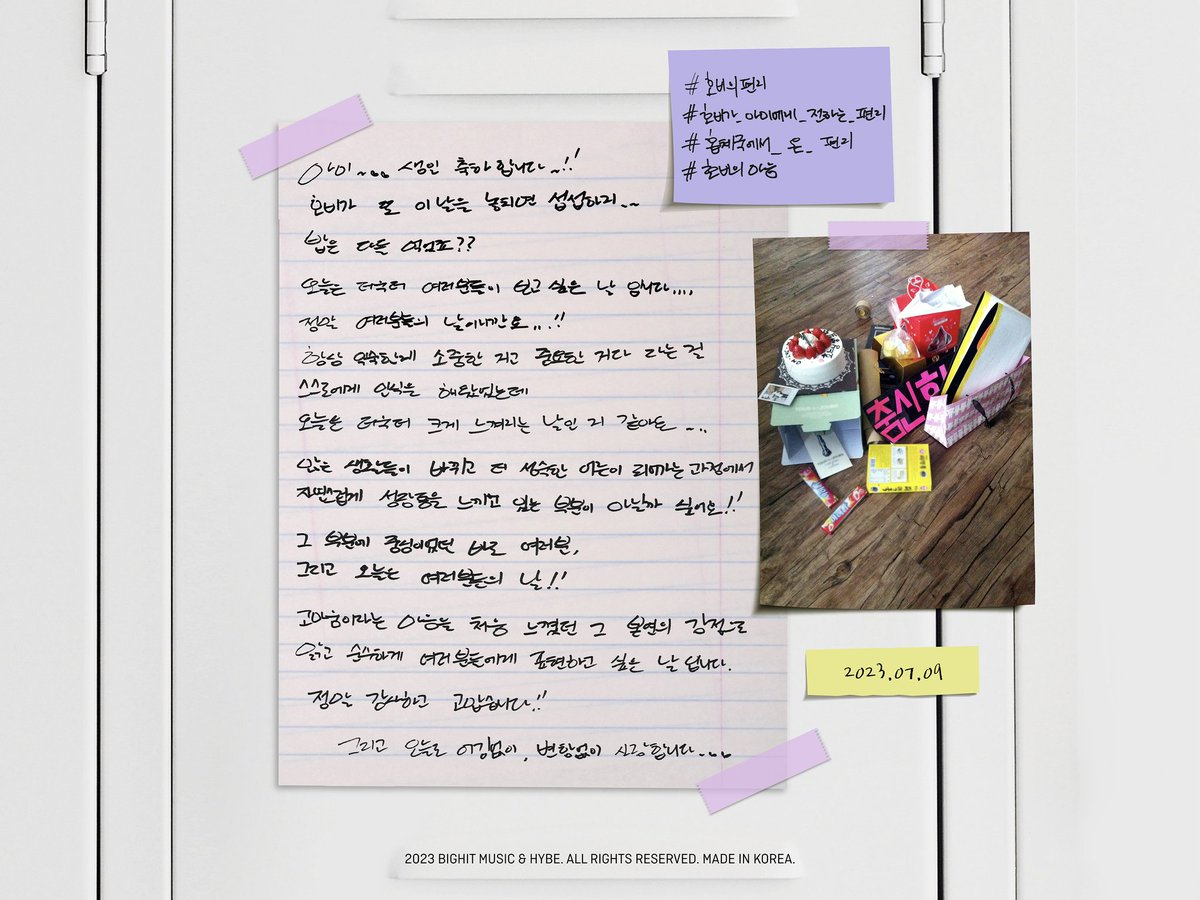 아미~... 생일 축하합니다~!!
호비가 또 이 날을 놓치면 섭섭하지~~
밥은 다들 먹었죠??
오늘은 더욱더 여러분들이 보고 싶은 날 입니다....
정말 여러분들의 날이니깐요...!!
항상 익숙한게 소중한 거고 중요한 거다 라는 걸
스스로에게 인식을 해왔었는데
오늘은 더욱더 크게 느껴지는 날인 거 같아요~..
많은 생각들이 바뀌고 더 성숙한 어른이 되어가는 과정에서
자연스럽게 성장통을 느끼고 있는 부분이 아닐까 싶어요!!
그 부분에 중심이었던 바로 여러분,
그리고 오늘은 여러분들의 날!!
고마움이라는 마음을 처음 느꼈던 그 본연의 감정으로
맑고 순수하게 여러분들에게 표현하고 싶은 날 입니다.
정말 감사하고 고맙습니다!!
그리고 오늘도 어김없이, 변함없이 사랑합니다~..
#호비의편지
#호비가_아미에게_전하는_편지
#홉필국에서_온_편지
#호비의마음
춤신
2023.07.09
2023 BIGHIT MUSIC & HYBE. ALL RIGHTS RESERVED. MADE IN KOREA.